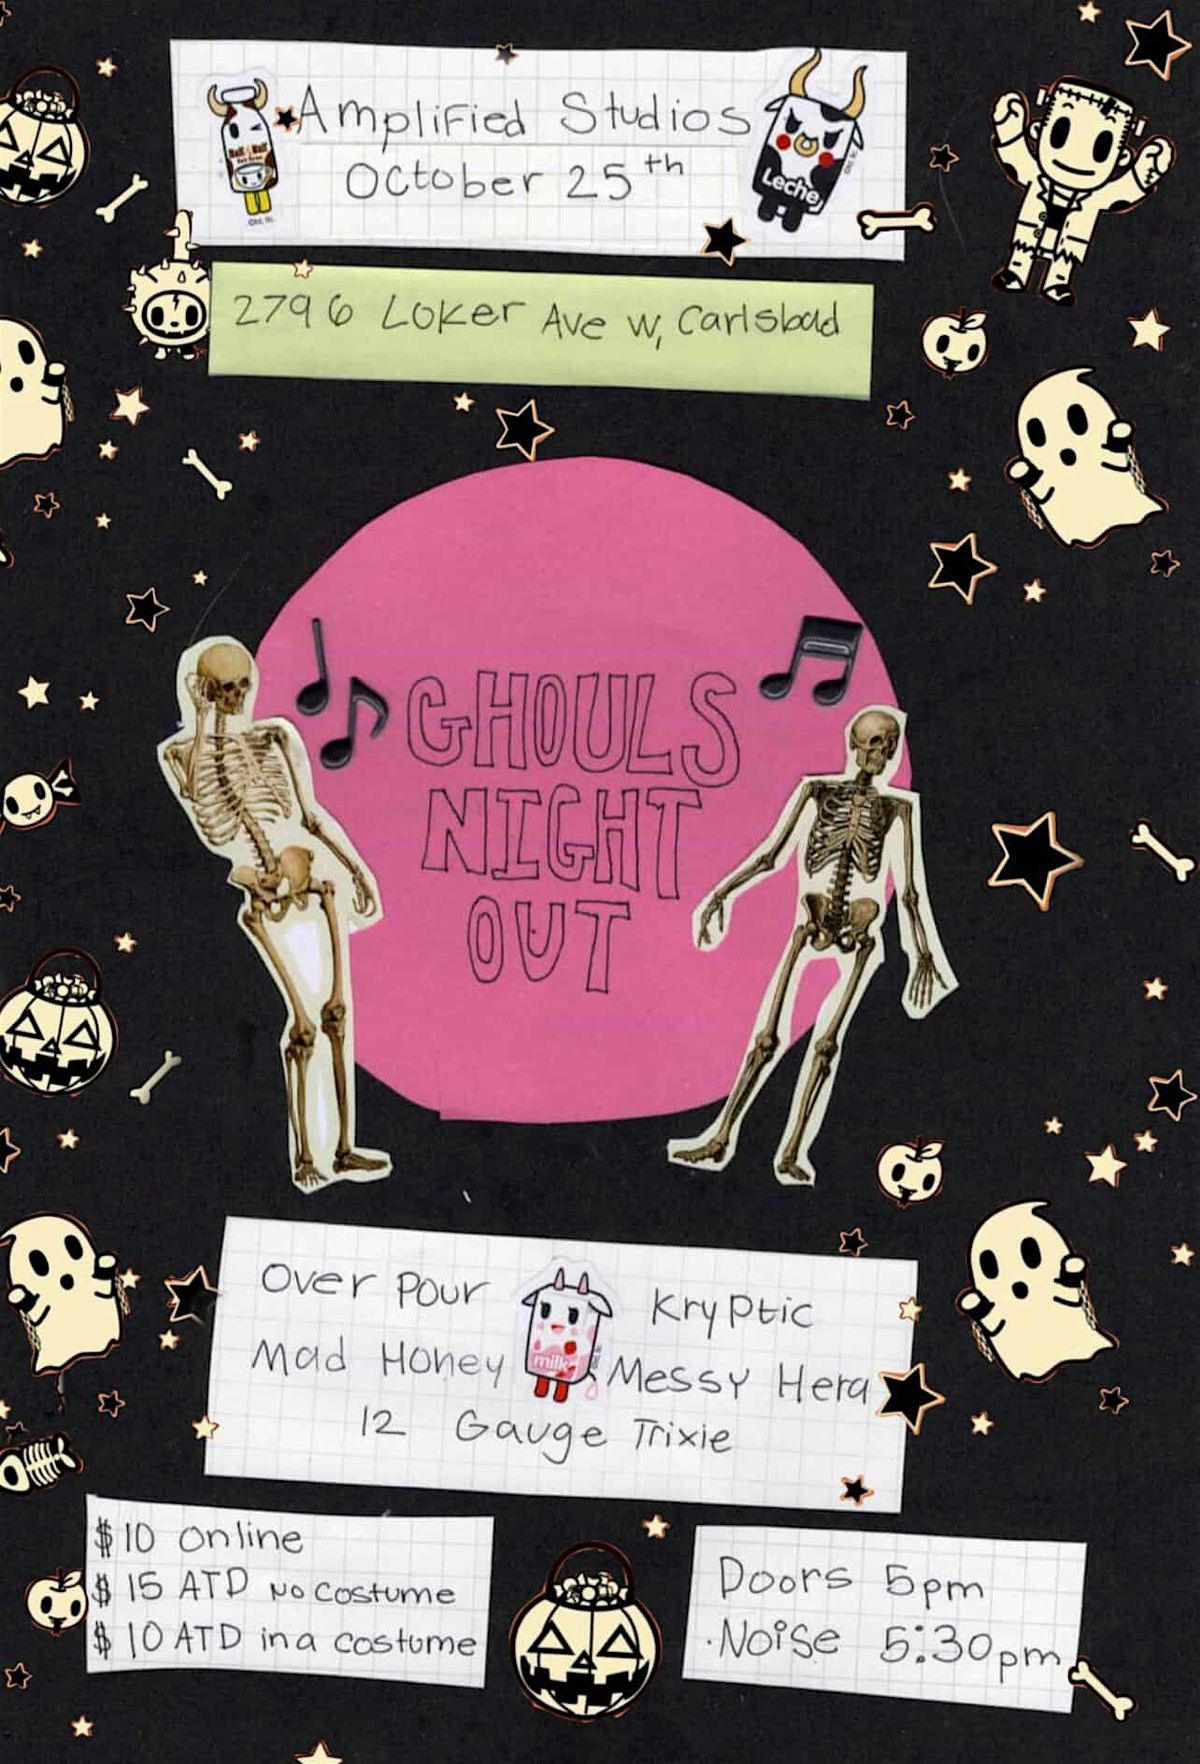 Amplified Studios
October 25th
Half & Half
Leche
2796 Loker Ave W, Carlsbad
GHOULS
NIGHT
OUT
Over Pour Kryptic
Mad Honey milk Messy Hera
12 Gauge Trixie
$10 online
$15 ATD No costume
$10 ATD in a costume
Doors 5pm
Noise 5:30pm